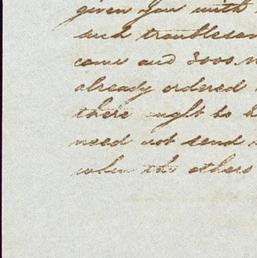 given you with
such troublesom
come and 3000.
already ordered
there ought to
need not send
when the others